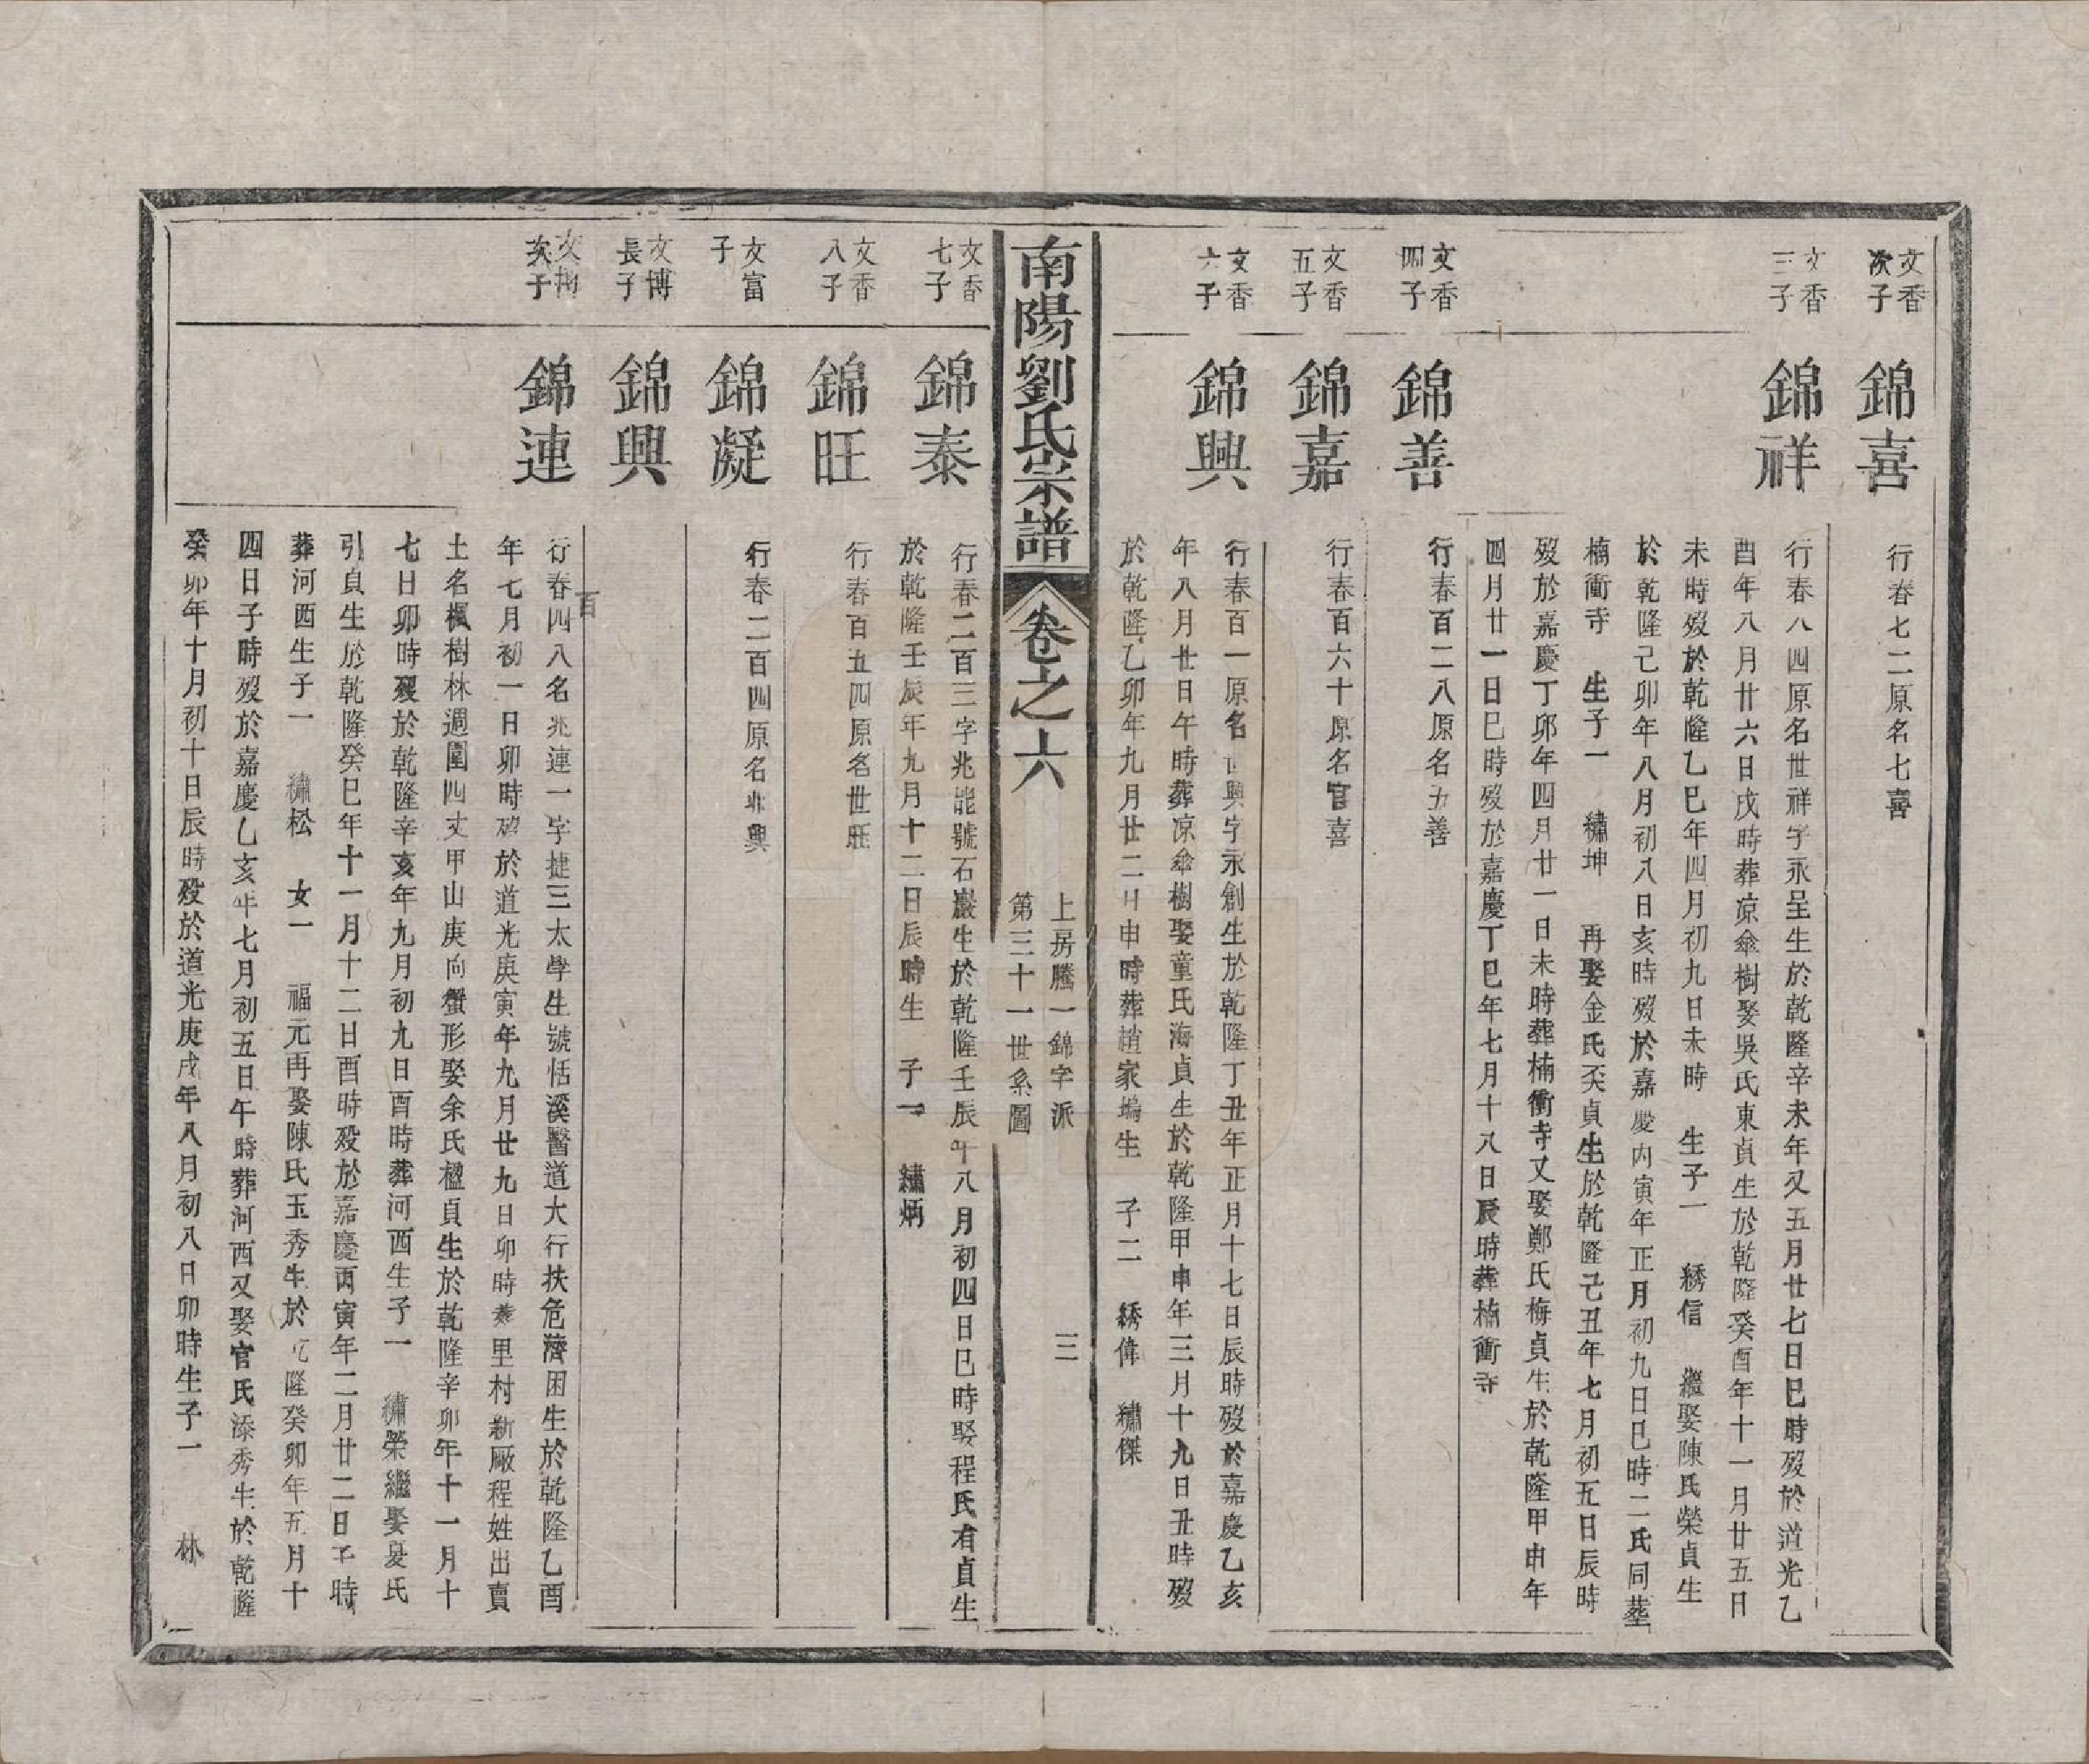 文香
次子
錦喜
行春七二原名七喜
文香
三子
錦祥
行春八四原名世祥字永呈生於乾隆辛未年又五月廿七日巳時歿於道光乙
酉年八月廿六日戌時葬凉傘樹娶吳氏東貞生於乾隆癸酉年十一月廿五日
未時歿於乾隆乙巳年四月初九日未時　生子一　綉信　繼娶陳氏榮貞生
於乾隆己卯年八月初八日亥時歿於嘉慶丙寅年正月初九日巳時二氏同塟
楠衝寺　生子一　繡坤　再娶金氏芖貞生於乾隆己丑年七月初五日辰時
歿於嘉慶丁卯年四月廿一日未時葬楠衝寺又娶鄭氏梅貞生於乾隆甲申年
四月廿一日巳時歿於嘉慶丁巳年七月十八日辰時葬楠衝寺
文香
四子
錦善
行春百二八原名五善
文香
五子
錦嘉
行春百六十原名官喜
文香
六子
錦興
行春百一原名世興字永創生於乾隆丁丑年正月十七日辰時歿於嘉慶乙亥
年八月廿日午時葬凉傘樹娶童氏海貞生於乾隆甲申年三月十九日丑時歿
於乾隆乙卯年九月廿二日申時葬趙家塢生　子二　綉偉　繡傑
南陽劉氏宗譜
卷之六
上房騰一錦字派
第三十一世系圖
三
文香
七子
錦泰
行春二百三字兆能號石巖生於乾隆壬辰年八月初四日巳時娶程氏有貞生
於乾隆壬辰年九月十二日辰時生　子一　繡炳
文香
八子
錦旺
行春百五四原名世旺
文富
子
錦凝
行春二百四原名兆興
文博
長子
錦興
文博
次子
錦連
百
行春四八名兆連一字捷三太學生號恬溪醫道大行扶危濟困生於乾隆乙酉
年七月初一日卯時歿於道光庚寅年九月廿九日卯時葬里村新廠程姓出賣
土名楓樹林週圍四丈甲山庚向蟹形娶余氏楹貞生於乾隆辛卯年十一月十
七日卯時歿於乾隆辛亥年九月初九日酉時葬河西生子一　繡榮繼娶夏氏
引貞生於乾隆癸巳年十一月十二日酉時歿於嘉慶丙寅年二月廿二日子時
葬河西生子一　繡松　女一　福元再娶陳氏玉秀生於乾隆癸卯年五月十
四日子時歿於嘉慶乙亥年七月初五日午時葬河西又娶官氏添秀生於乾隆
癸卯年十月初十日辰時歿於道光庚戌年八月初八日卯時生子一　林